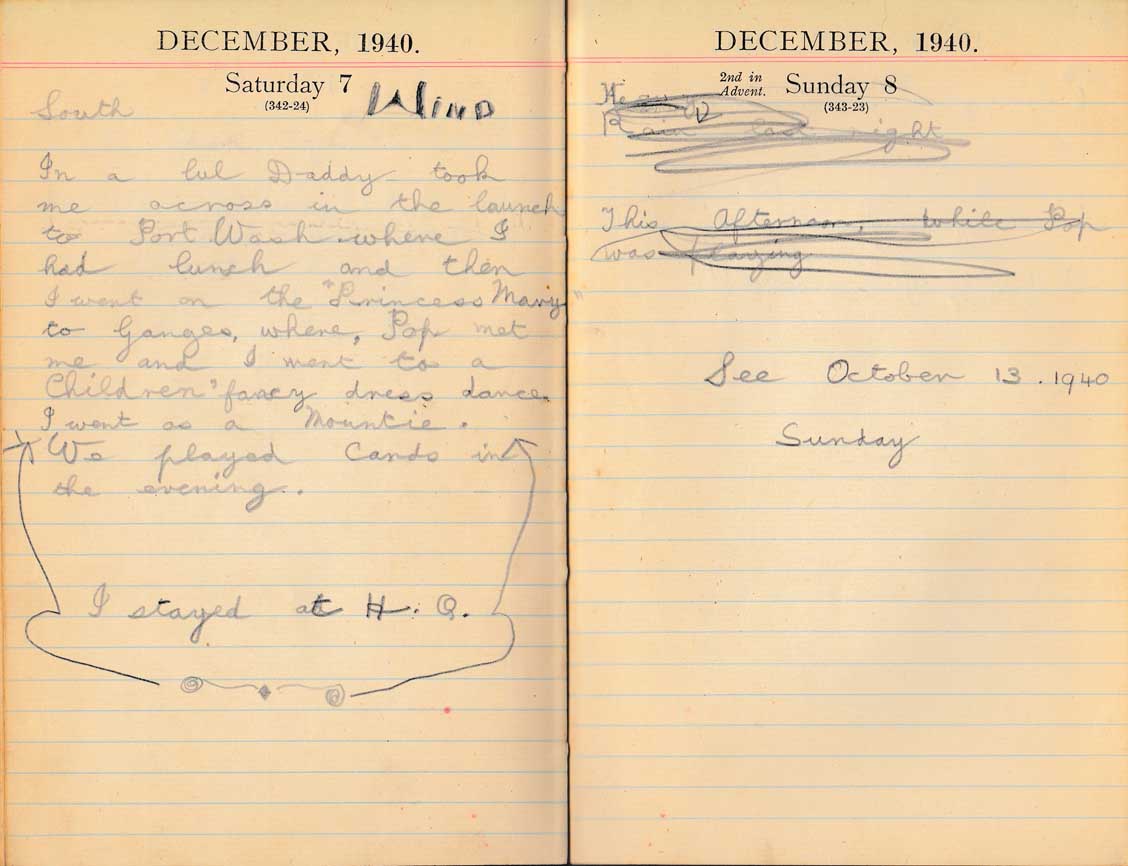 DECEMBER, 1940.
Saturday 7
(342-24)
South WIND
In a lul Daddy took
me across in the launch
to Port Wash. where I
had lunch and then
I went on the "Princess Mary"
to Ganges, where, Pop met
me and I went to a
Children" fancy dress dance.
I went as a Mountie.
We played Cards in
the evening..
I stayed at H. Q.
DECEMBER, 1940.
2nd in
Advent.
Sunday 8
(343-23)
Heavy
Rain last night
This Afternoon, while Pop
was playing
See October 13. 1940
Sunday